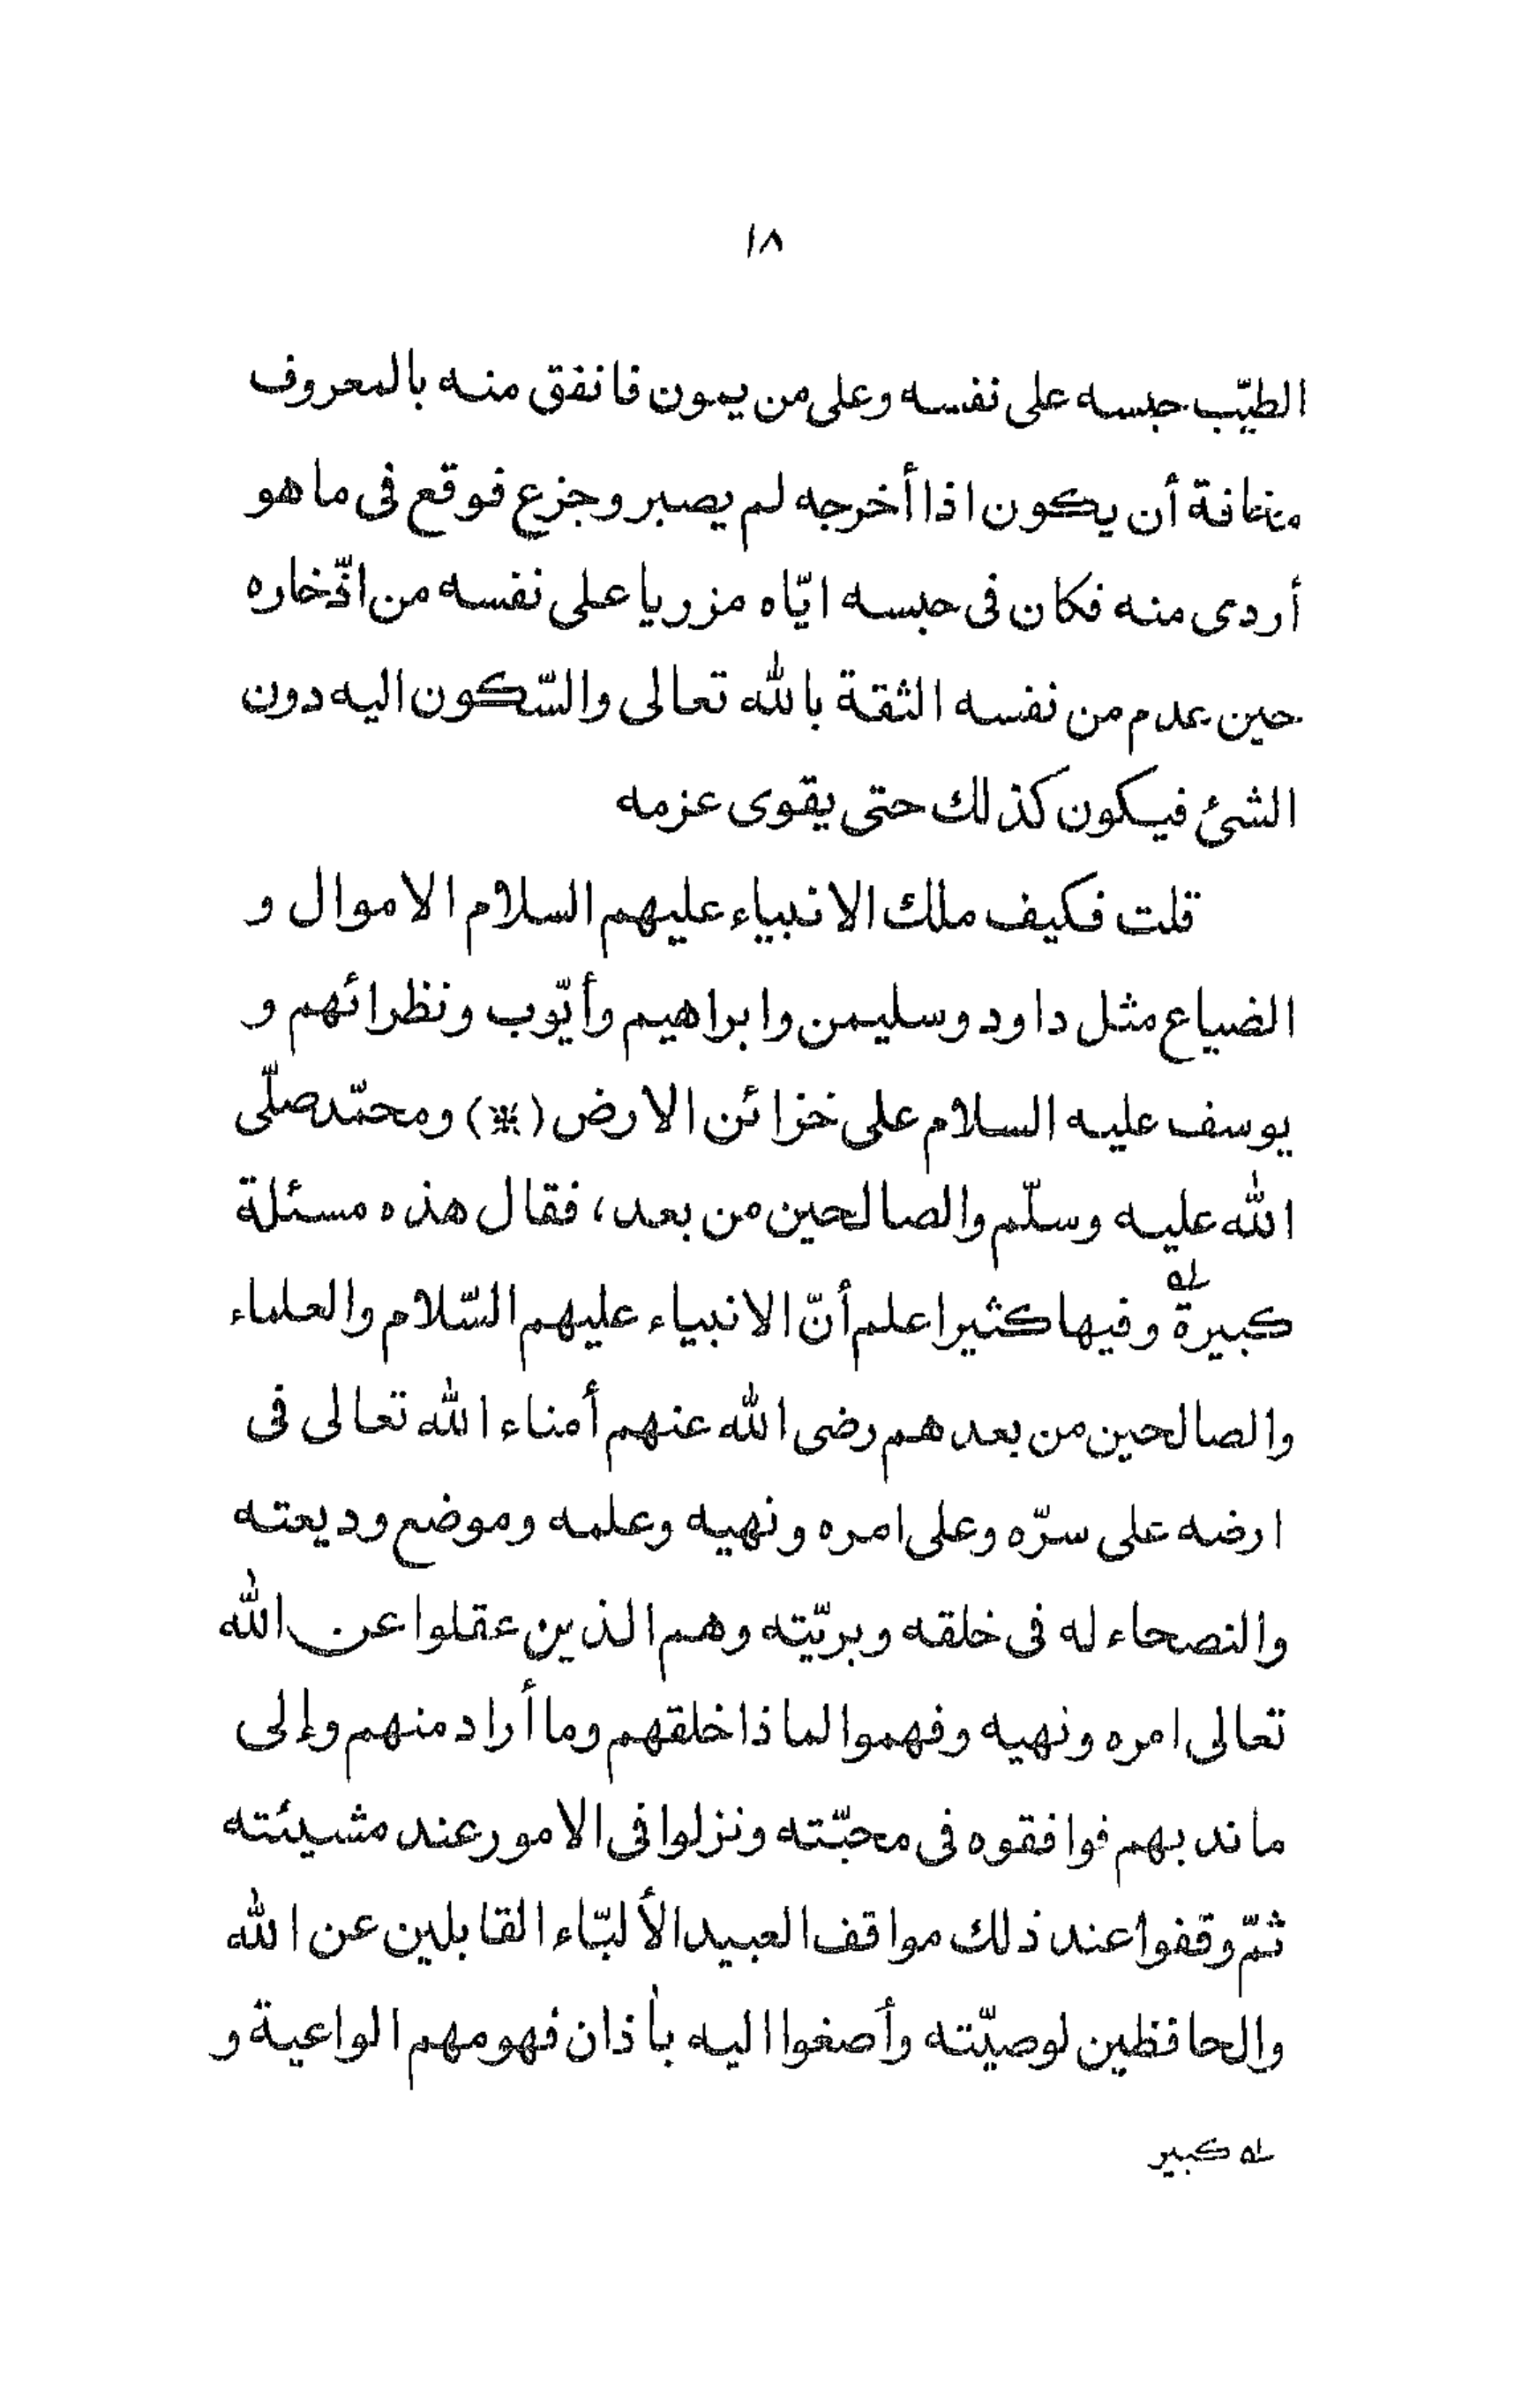 ١٨
الطيّب حبسه على نفسه وعلى من يمون فانفق منه بالمعروف
مخافة أن يكون اذا أخرجه لم يصبر وجزع فوقع فى ما هو
أردى منه فكان فى حبسه ايّاه مزريا على نفسه من اذّخاره
حين عدم من نفسه الثقة بالله تعالى والسّكون اليه دون
الشئ فيكون كذلك حتى يقوى عزمه
قلت فكيف ملك الانبياء عليهم السلام الاموال و
الضياع مثل داود وسليمن وابراهيم وأيّوب ونظرائهم و
يوسف عليه السلام على خزائن الارض (*) ومحمّد صلّى
الله عليه وسلّم والصالحين من بعد، فقال هذه مسئلة
كبيرة ١ه وفيها كثير اعلم أنّ الانبياء عليهم السّلام والعلماء
والصالحين من بعدهم رضى الله عنهم أمناء الله تعالى فى
ارضه على سرّه وعلى امره ونهيه وعلمه وموضع وديعته
والنصحاء له فى خلقه وبريّته وهم الذين عقلوا عن الله
تعالى امره ونهيه وفهموا لماذا خلقهم وما أراد منهم وإلى
ما ندبهم فوافقوه فى محبّته ونزلوا فى الامور عند مشيئته
ثمّ وقفوا عند ذلك مواقف العبيد الألبّاء القابلين عن الله
والحافظين لوصيّته وأصغوا اليه بأذان فهومهم الواعية و
١ه كبير